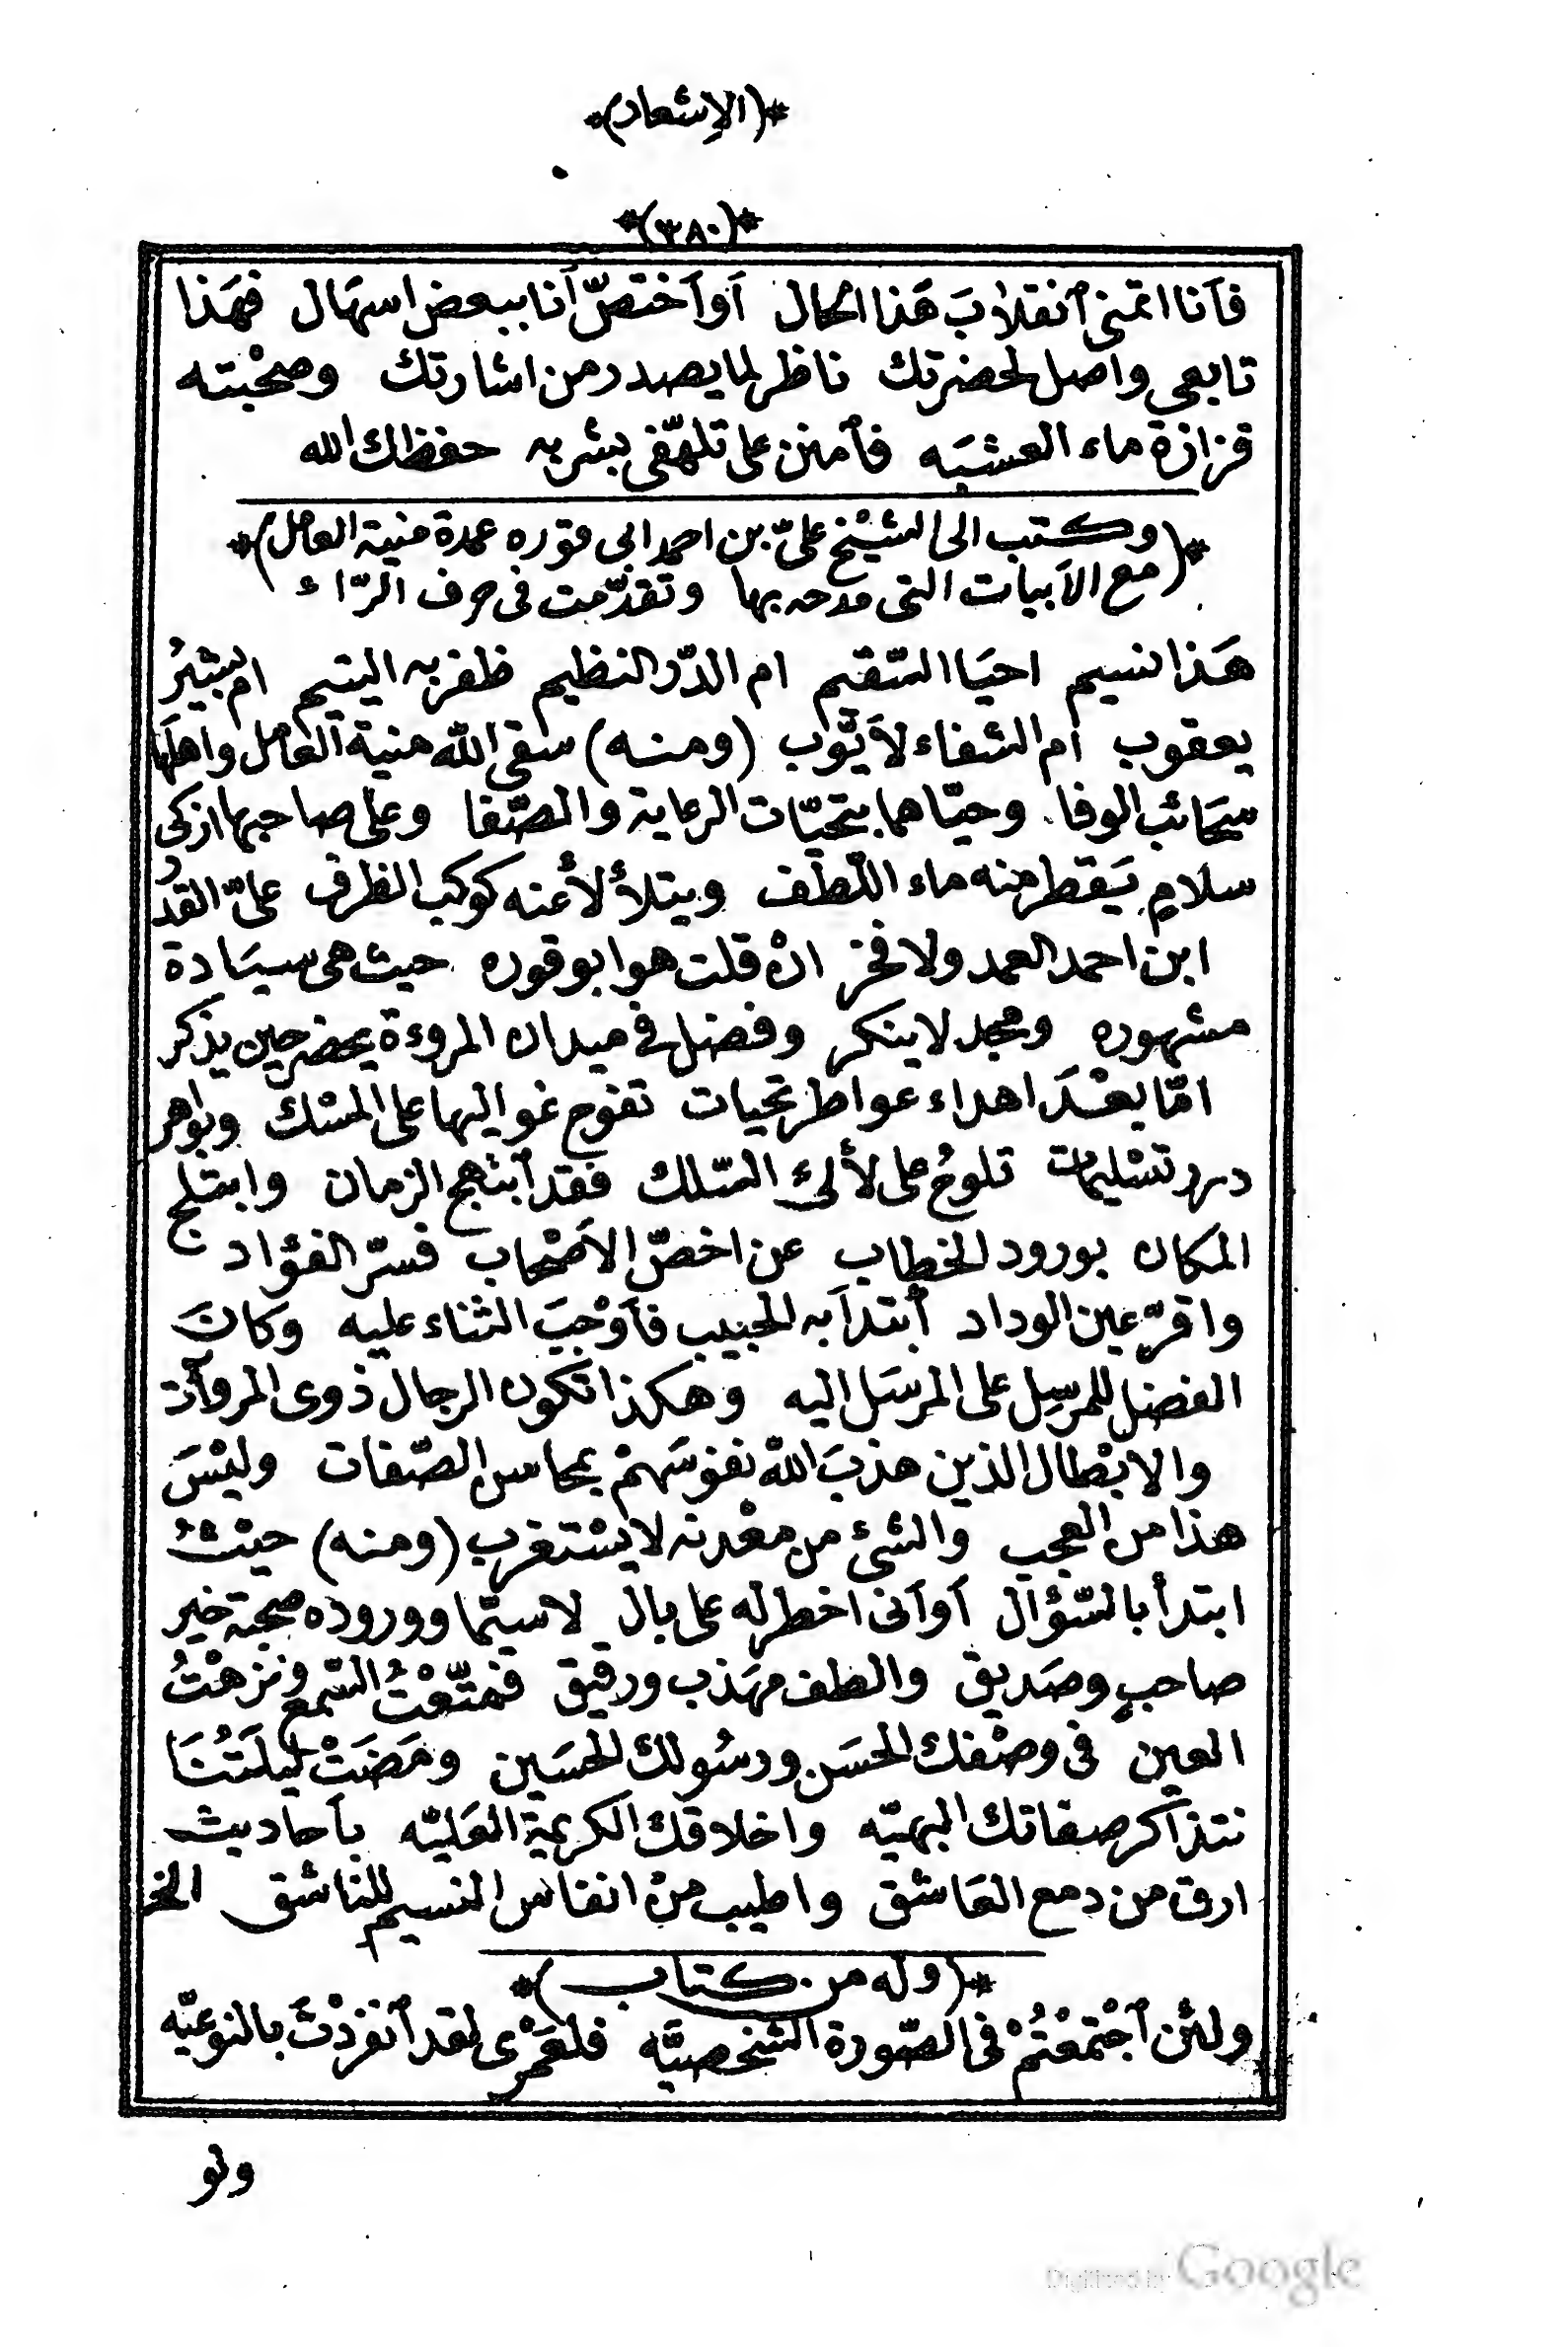 *(الاِشعار)*
*(٣٨٠)*
فأنا اتمنى ٱنقلابَ هَذا الحال أو أختصّ أنا ببعض اسهال فهَذا
تابعى واصل لحضرتك ناظر لما يصدر من اشارتك وصحْبته
قزازة ماء العشبَه فٱمنن على تلهّفى بشربه حفظك الله
*(وكتب الى الشيْخ علىّ بن احمد ابى قوره عمدة منية العامل)*
(مع الأبيات التى مدحه بها وتقدّمت فى حرف الرّاء
هَذا نسيم احيَا السّقيم ام الدّر النظيم ظفر به اليتيم ام بشيرُ
يعقوب أم الشفاء لأيّوب (ومنه) سقى اللّه منية العامل واهلَها
سحَائب الوفا وحيّاهما بتحيّات الرعاية والصّفا وعلى صاحبها ازكى
سلامٍ يَقطر منه ماء اللّطف ويتلألأ عنه كوكب الظرف علىّ القدْرُ
ابن احمد العمد ولا فخر انْ قلت هو ابو قوره حيث هى سيَادة
مشهوره ومجد لا ينكر وفضل فى ميدان المروءة يحضر حين يذكر
امّا بعْدَ اهداء عواطر تحيات تفوح غواليها على المسْك وبواهر
درر تسْليمات تلوحُ على لألىء السّلك فقد ٱبتهج الزمان وابتلج
المكان بورود الخطاب عن اخصّ الأصْحاب فسرّ الفؤاد
واقرّ عين الوداد أبتدأ به الحبيب فأوْجبَ الثناء عليه وكانَ
الفضل للمرسِل على المرسَل اليه وهكذا تكون الرجال ذوى المروآت
والابْطال الذين هذبَ اللّه نفوسَهمْ بمحاسن الصّفات وليْسَ
هذا من العجب والشىء من معْدنه لا يسْتغرب (ومنه) حيْثُ
ابتدأ بالسّؤال أو أنى اخطر له على بال لا سيّما ووروده صحبة خير
صاحبٍ وصَديق والطف مهَذب ورقيق فمتّعْتُ السّمع ونزهْتُ
العين فى وصْفك الحسَن ورسُولك الحسَين ومَضَتْ ليلَتُنَا
نتذاكر صفاتك البهيّه واخلاقك الكريمة العَليّه بأحاديث
ارق من دمع العَاشق واطيب منْ انفاس النسيم للناشق الخ
*(وله من كتاب)*
ولئن ٱجْتمعْتُمْ فى الصّورة الشخصيَّه فلعَمْرى لقد ٱنفردْتَ بالنوعيّه
ولو
Digitized by Google